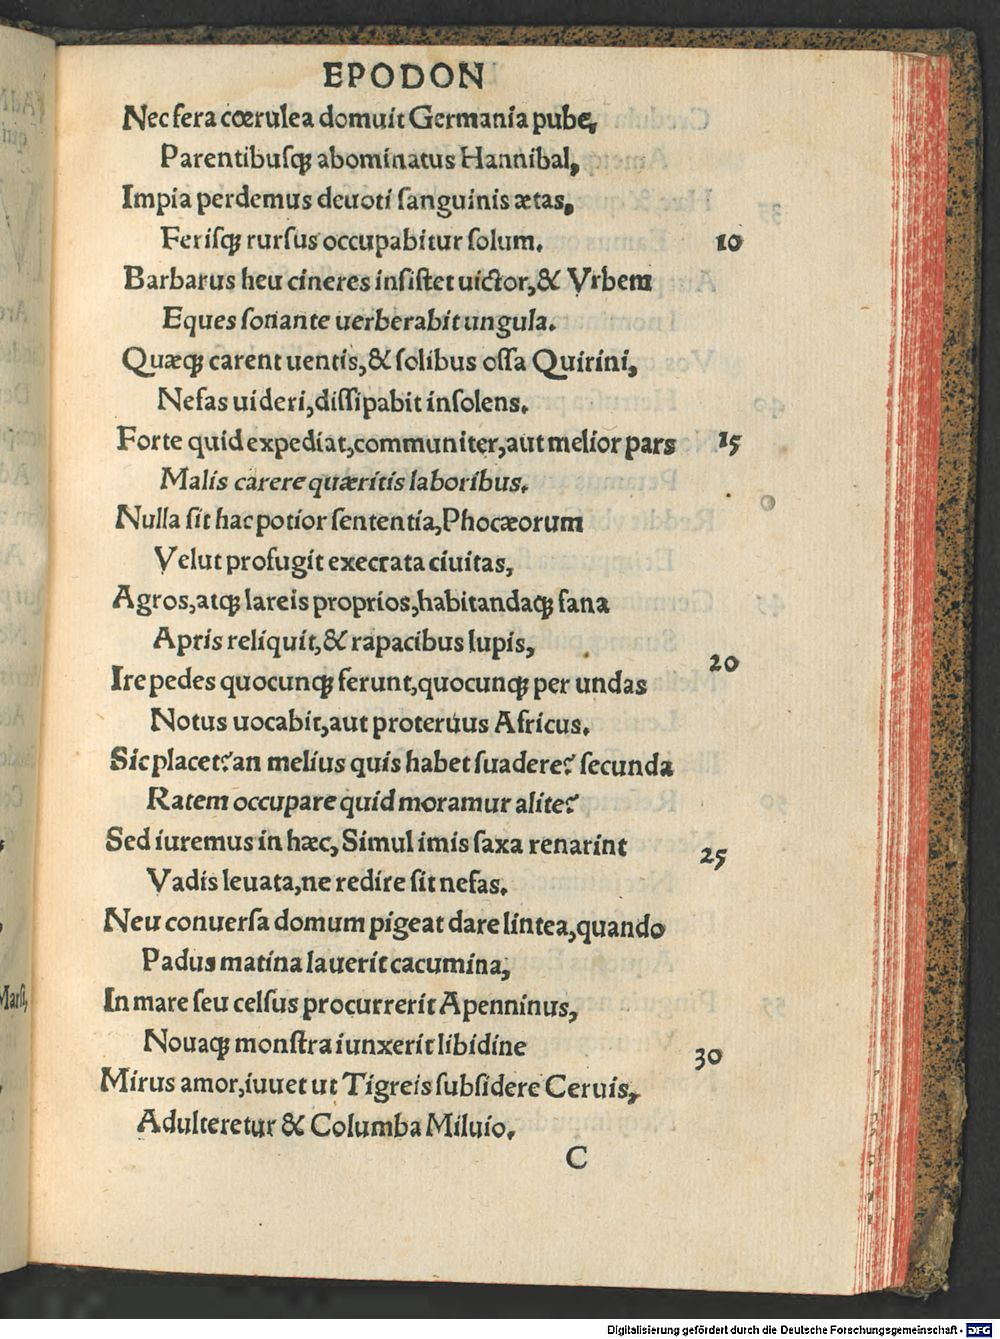 EPODON
Nec fera cœrulea domuit Germania pube,
Parentibusq; abominatus Hannibal,
Impia perdemus deuoti sanguinis ætas,
Ferisq; rursus occupabitur solum. 10
Barbarus heu cineres insistet uictor, & Vrbem
Eques sonante uerberabit ungula.
Quæq; carent uentis, & solibus ossa Quirini,
Nefas uideri, dissipabit insolens.
Forte quid expediat, communiter, aut melior pars 15
Malis carere quæritis laboribus.
Nulla sit hac potior sententia, Phocæorum
Velut profugit execrata ciuitas,
Agros, atq; lareis proprios, habitandaq; fana
Apris reliquit, & rapacibus lupis, 20
Ire pedes quocunq; ferunt, quocunq; per undas
Notus uocabit, aut proteruus Africus.
Sic placet? an melius quis habet suadere? secunda
Ratem occupare quid moramur alite?
Sed iuremus in hæc, Simul imis saxa renarint 25
Vadis leuata, ne redire sit nefas.
Neu conuersa domum pigeat dare lintea, quando
Padus matina lauerit cacumina,
In mare seu celsus procurrerit Apenninus,
Nouaq; monstra iunxerit libidine 30
Mirus amor, iuuet ut Tigreis subsidere Ceruis,
Adulteretur & Columba Miluio.
C
Digitalisierung gefördert durch die Deutsche Forschungsgemeinschaft - DFG